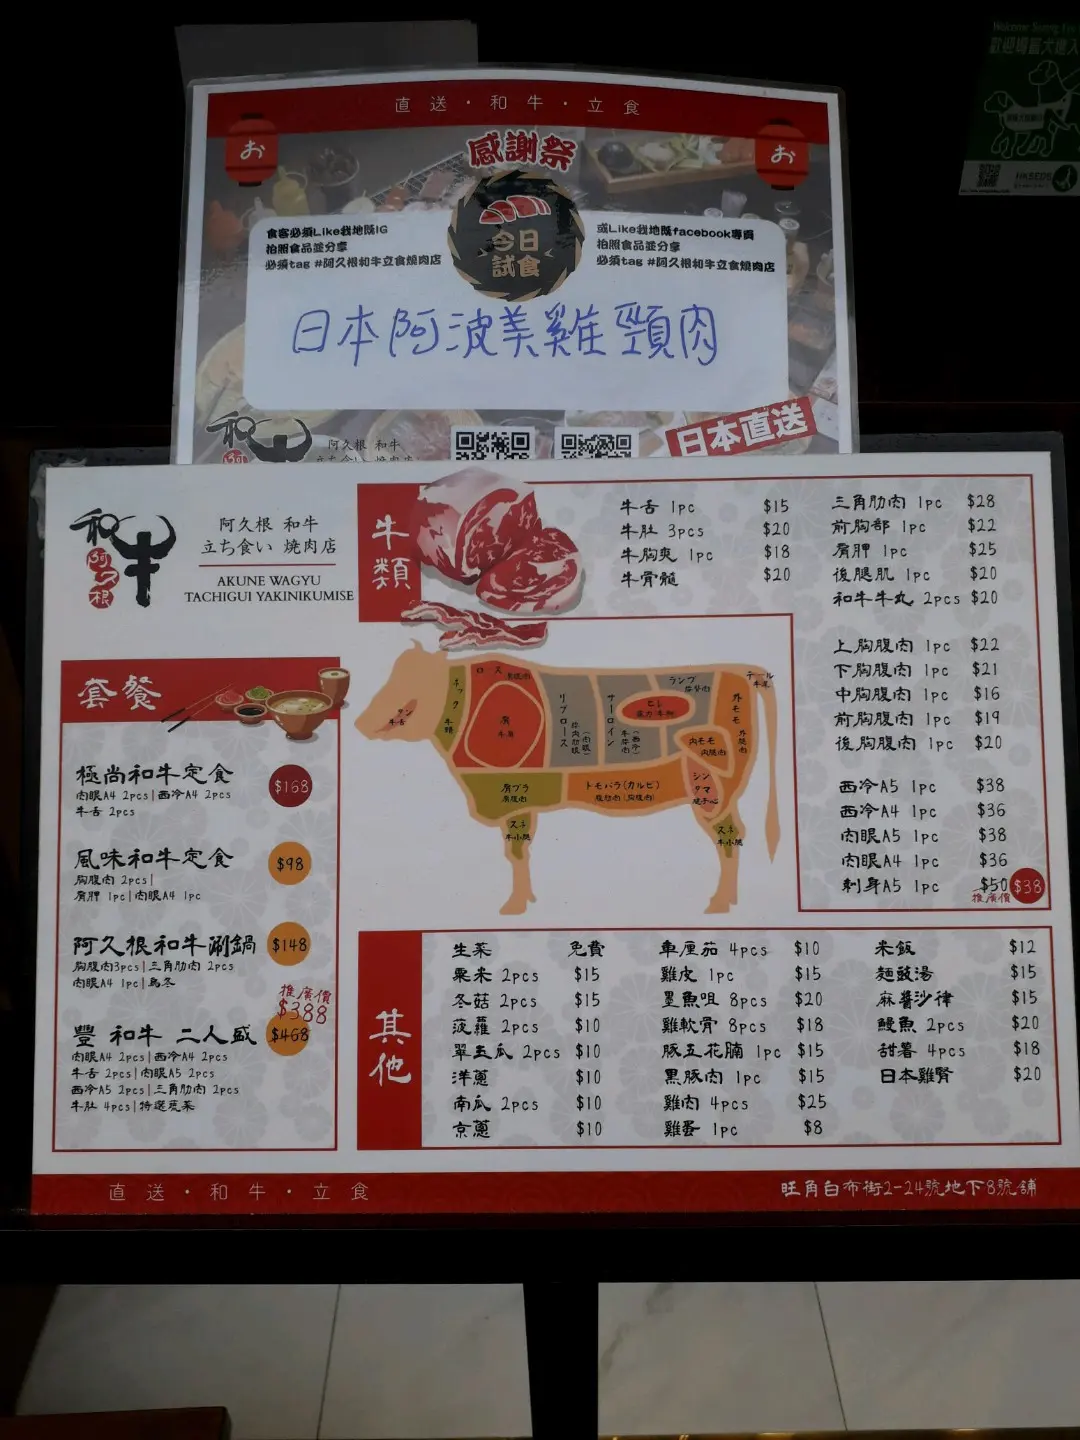 Welcome Seeing Eye
歡迎導盲犬進入
HKSEDS
直送・和牛・立食
お
お
感謝祭
今日
試食
食客必須Like我地既IG
拍照食品並分享
必須tag #阿久根和牛立食燒肉店
或Like我地既facebook專頁
拍照食品並分享
必須tag #阿久根和牛立食燒肉店
日本阿波美雞頸肉
和牛
阿久根 和牛
立ち食い 燒肉店
日本直送
和牛
阿久根
阿久根 和牛
立ち食い 燒肉店
AKUNE WAGYU
TACHIGUI YAKINIKUMISE
套餐
極尚和牛定食 $168
肉眼A4 2pcs|西冷A4 2pcs
牛舌 2pcs
風味和牛定食 $98
胸腹肉 2pcs|
肩胛 1pc|肉眼A4 1pc
阿久根和牛涮鍋 $148
胸腹肉3pcs|三角肋肉 2pcs
肉眼A4 1pc|烏冬
推廣價
$388
豐 和牛 二人盛 $468
肉眼A4 2pcs|西冷A4 2pcs
牛舌 2pcs|肉眼A5 2pcs
西冷A5 2pcs|三角肋肉 2pcs
牛肚 4pcs|特選蔬菜
牛類
牛舌 1pc $15
牛肚 3pcs $20
牛胸爽 1pc $18
牛骨髓 $20
三角肋肉 1pc $28
前胸部 1pc $22
肩胛 1pc $25
後腿肌 1pc $20
和牛牛丸 2pcs $20
上胸腹肉 1pc $22
下胸腹肉 1pc $21
中胸腹肉 1pc $16
前胸腹肉 1pc $19
後胸腹肉 1pc $20
西冷A5 1pc $38
西冷A4 1pc $36
肉眼A5 1pc $38
肉眼A4 1pc $36
刺身A5 1pc $50 $38
推廣價
タン
牛舌
ネック
牛頸
ロース
肩
リブロース
(肉眼)
サーロイン
(西冷)
ランプ
ヒレ
テール
牛尾
外モモ
外腿肉
内モモ
内腿肉
シン
タマ
肩ブラ
肩腹肉
トモバラ(カルビ)
腹肋肉(胸腹肉)
スネ
牛小腿
スネ
牛小腿
其他
生菜 免費
粟米 2pcs $15
冬菇 2pcs $15
菠蘿 2pcs $10
翠玉瓜 2pcs $10
洋蔥 $10
南瓜 2pcs $10
京蔥 $10
車厘茄 4pcs $10
雞皮 1pc $15
墨魚咀 8pcs $20
雞軟骨 8pcs $18
豚五花腩 1pc $15
黑豚肉 1pc $15
雞肉 4pcs $25
雞蛋 1pc $8
米飯 $12
麵豉湯 $15
麻醬沙律 $15
鰻魚 2pcs $20
甜薯 4pcs $18
日本雞腎 $20
直送・和牛・立食
旺角白布街2-24號地下8號舖